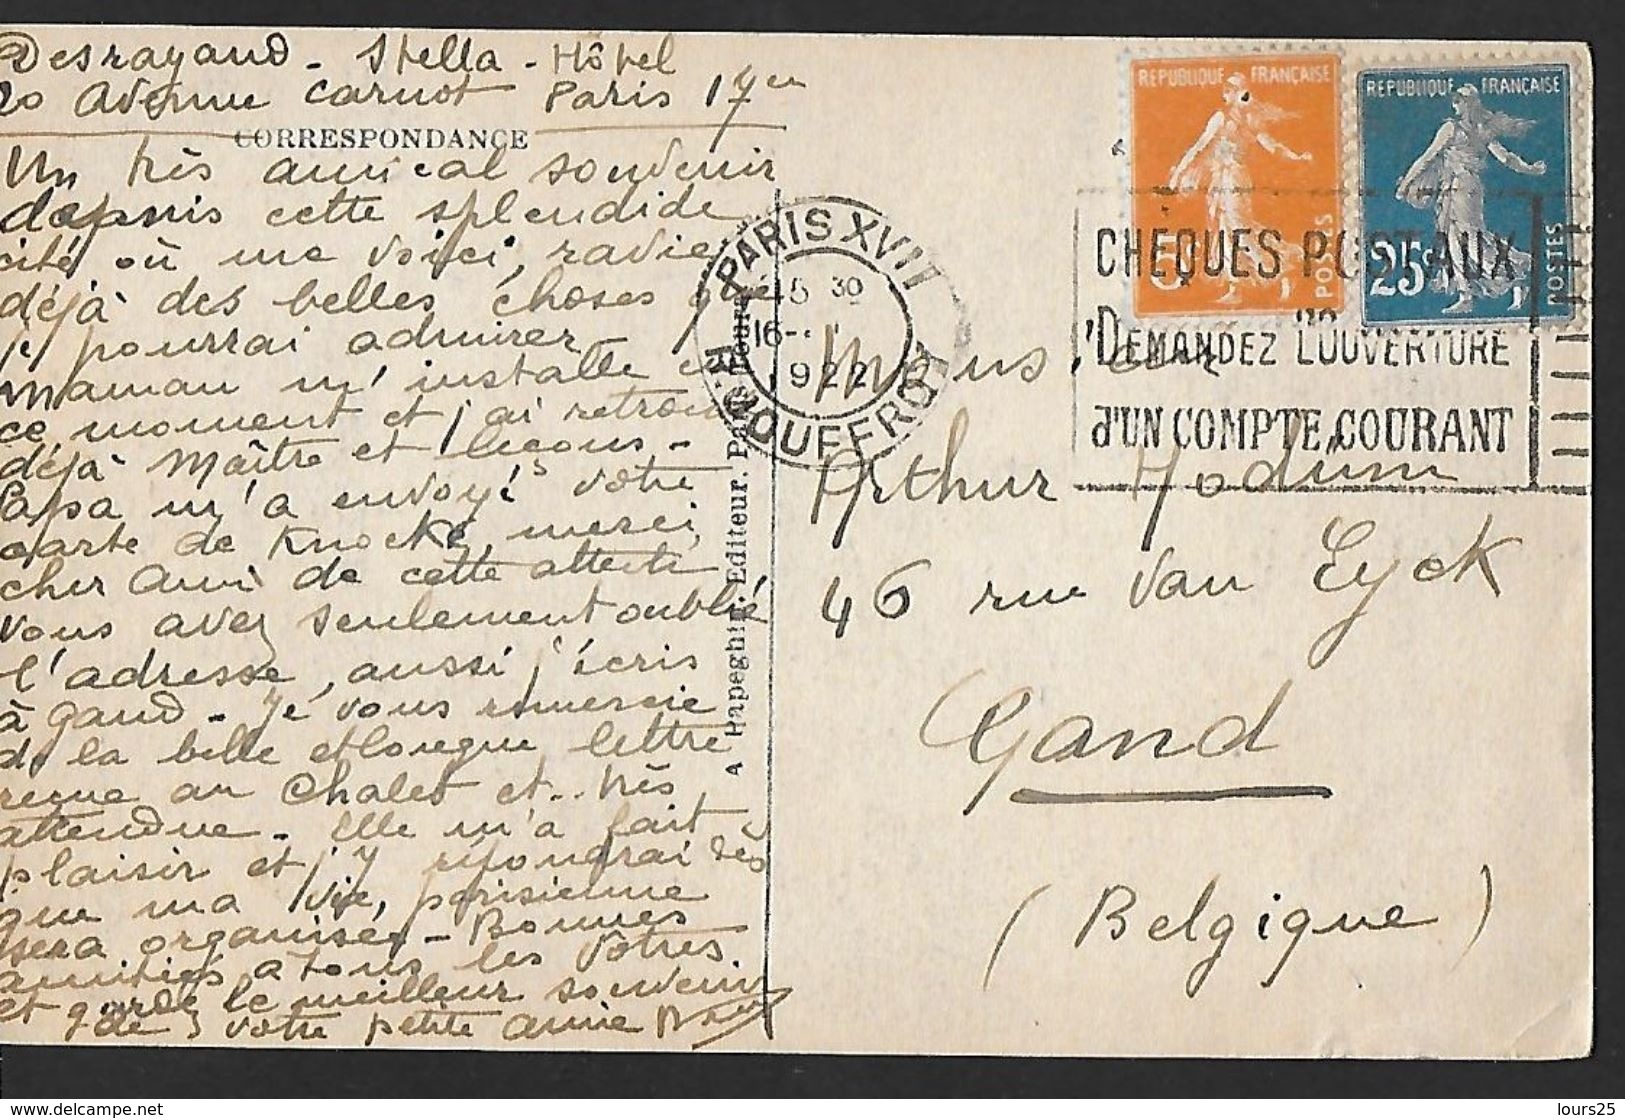 Desrayaud - Stella - Hôtel
20 Avenue Carnot Paris 17e
CORRESPONDANCE
Un très amical souvenir
depuis cette splendide
cité où me voici, ravie
déjà des belles choses que
je pourrai admirer
Maman m'installe en
ce moment et j'ai retrouvé
déjà Maître et leçons -
Papa m'a envoyé votre
carte de Knocke, merci,
cher Ami de cette attente
vous avez seulement oublié
l'adresse, aussi j'écris
à Gand - Je vous remercie
de la belle et longue lettre
reçue au Chalet et.. très
attendue - Elle m'a fait
plaisir et j'y répondrai dès
que ma vie parisienne
sera organisée - Bonnes
amitiés à tous les vôtres
et gardez le meilleur souvenir
de votre petite amie
A Papeghin, Editeur. Paris-Tours
PARIS XVII
R. JOUFFROY
15 30
16
1922
REPUBLIQUE FRANÇAISE
5c
POSTES
REPUBLIQUE FRANÇAISE
25c
POSTES
CHEQUES POSTAUX
DEMANDEZ L'OUVERTURE
d'UN COMPTE COURANT
Monsieur
Arthur
46 rue Van Eyck
Gand
(Belgique)
lours25